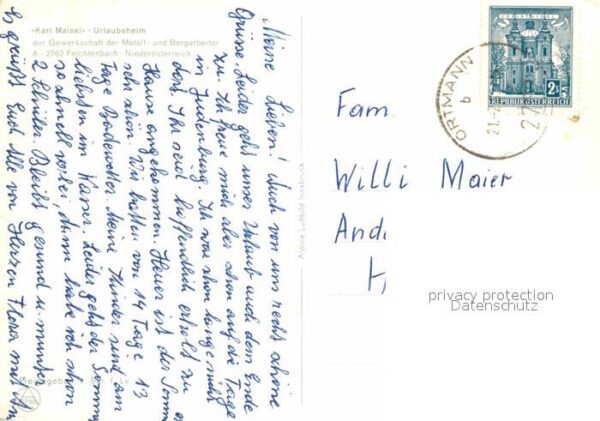 «Karl Maisel» - Urlaubsheim
der Gewerkschaft der Metall- und Bergarbeiter
A - 2762 Feichtenbach - Niederösterreich
Meine Lieben! Auch von uns recht schöne
Grüsse. Leider geht unser Urlaub auch dem Ende
zu. Ich freue mich aber schon auf die Tage
in Judenburg. Ich war schon lange nicht
dort. Ihr seid hoffendlich erholt zu
Hause angekommen. Heuer ist der Sommer
sehr schön. Wir hatten von 14 Tage 13
Tage Badewetter. Meine Kinder sind am
liebsten im Wasser. Leider geht der Sommer
so schnell vorbei dann habe ich schon
2 Schüler. Bleibt gesund u. munter
Es grüßt Euch Alle von Herzen
Alpine Luftbild Innsbruck
ORTMANN
b
CHRISTKINDL
2 S
REPUBLIK ÖSTERREICH
Fam.
Willi Maier
privacy protection
Datenschutz